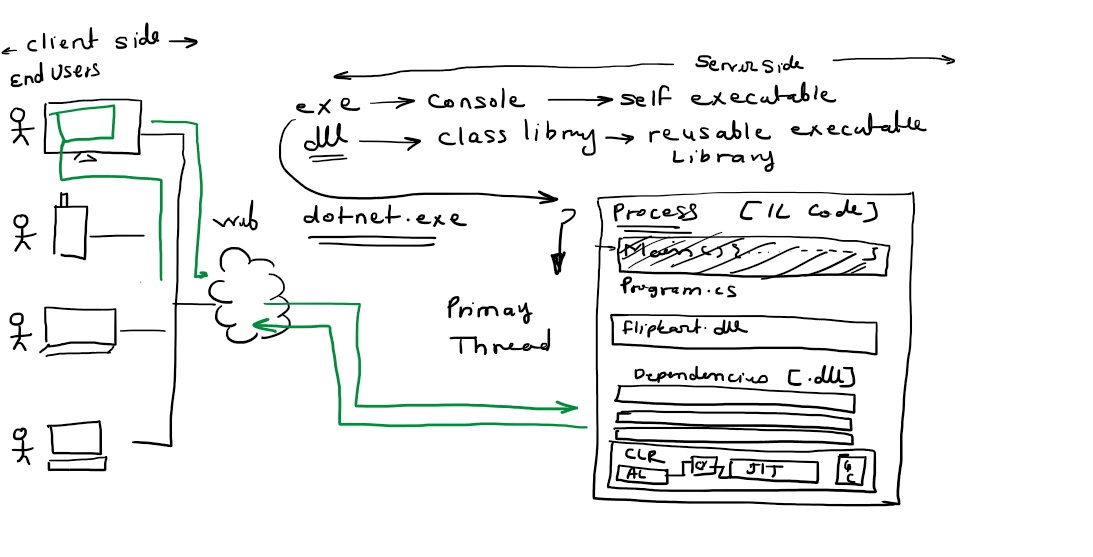 ← client side →
End users
Server side
exe → console → self executable
dll → class library → reusable executable
Library
dotnet.exe
web
?
Primay
Thread
Process [IL Code]
Main()
Program.cs
flipkart.dll
Dependencies [.dll]
CLR
AL
JIT
GC